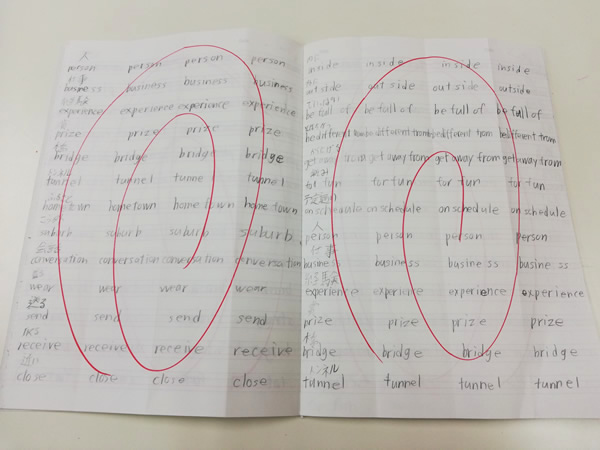 人
person person person person
仕事
business business business business
経験
experience experience experience experience
賞
prize prize prize prize
橋
bridge bridge bridge bridge
トンネル
tunnel tunnel tunne tunnel
hometown hometown home town home town
suburb suburb suburb suburb
会話
conversation conversation conversation conversation
wear wear wear wear
送る
send send send send
receive receive receive receive
close close close close
inside inside inside inside
out side out side out side outside
be full of be full of be full of be full of
be different from be different from be different from be different from
get away from get away from get away from get away from
for fun for fun for fun for fun
予定通り
on schedule on schedule on schedule on schedule
人
person person person person
仕事
business business busine ss busine ss
経験
experience experience experience experience
prize prize prize prize
橋
bridge bridge bridge bridge
トンネル
tunnel tunnel tunnel tunnel